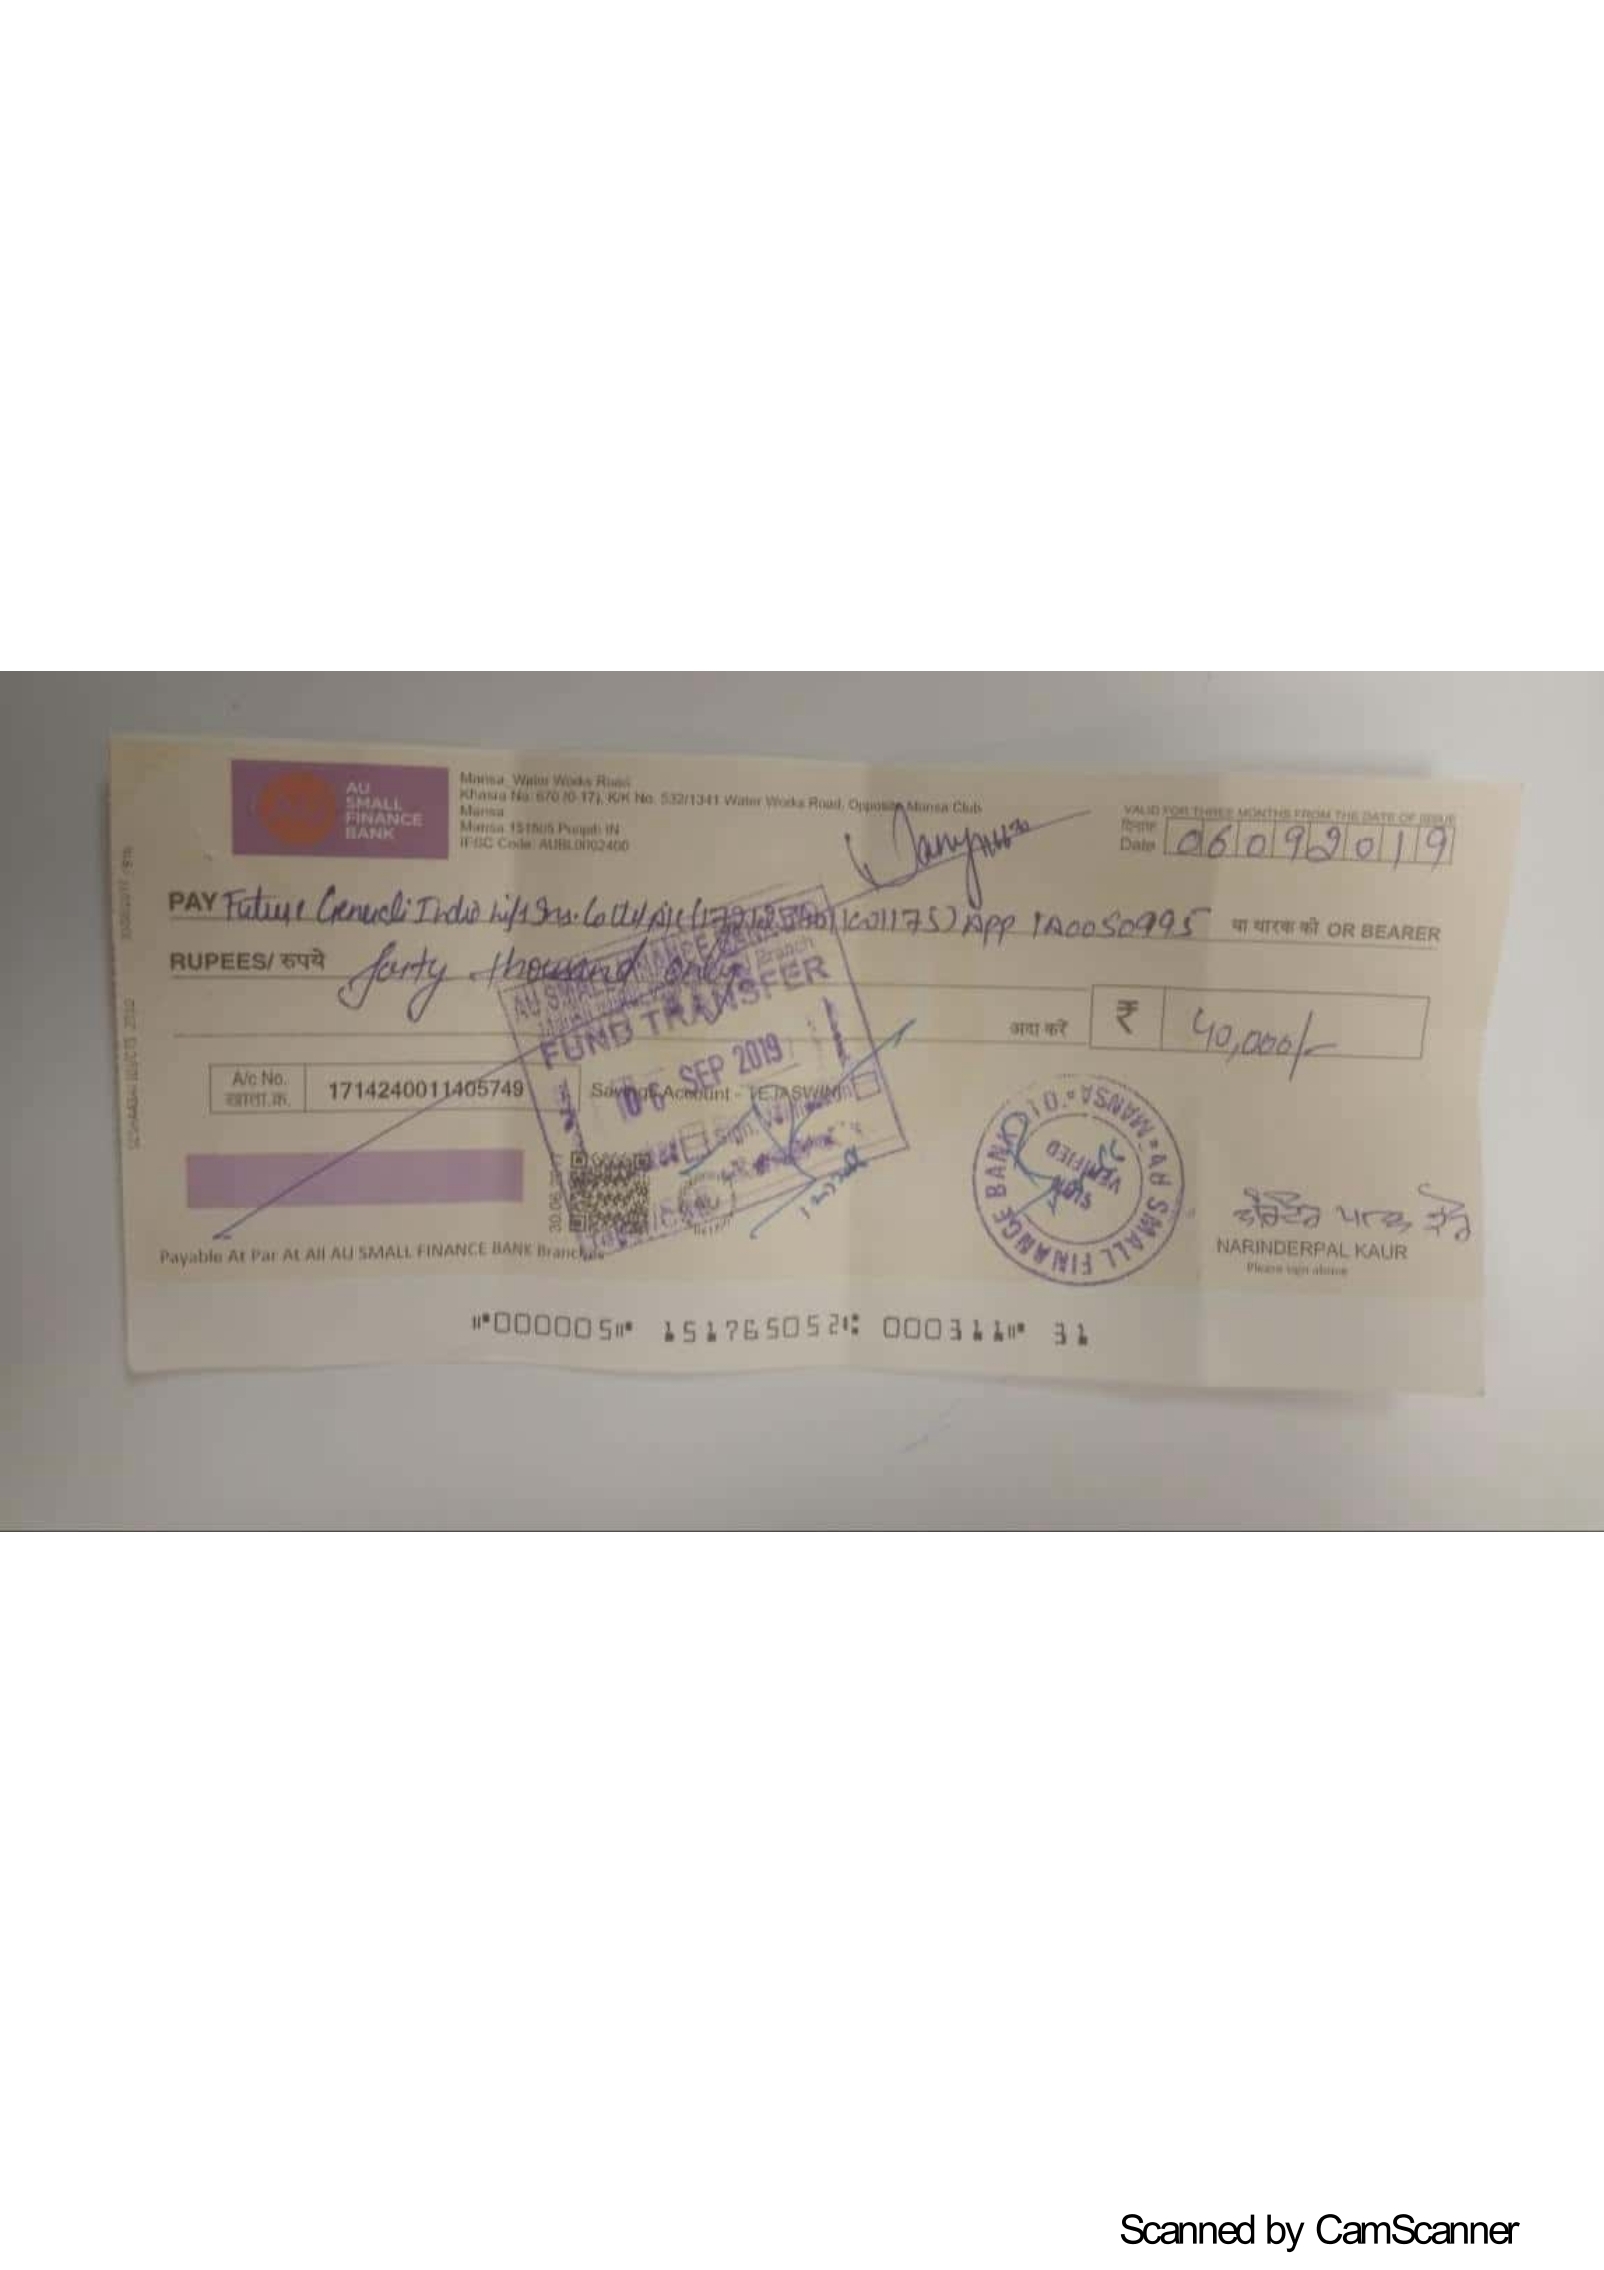 AU
SMALL
FINANCE
BANK
Mansa, Water Works Road
Khasra No. 670 (0-17), K/K No. 532/1341 Water Works Road, Opposite Mansa Club
Mansa
Mansa 151505 Punjab IN
IFSC Code: AUBL0002400
VALID FOR THREE MONTHS FROM THE DATE OF ISSUE
दिनांक
Date 06092019
PAY Future Generali India Life Ins. Co Ltd A/c ( 1C01175) App 1A0050995 या धारक को OR BEARER
RUPEES/ रुपये forty thousand only
अदा करें ₹ 40,000/-
AU SMALL FINANCE BANK
Branch
FUND TRANSFER
06 SEP 2019
A/c No.
खाता.क्र. 1714240011405749 Savings Account - TEJASWINI
AU SMALL FINANCE BANK LTD. MANSA
SIGN VERIFIED
ਨਰਿੰਦਰ ਪਾਲ ਕੌਰ
NARINDERPAL KAUR
Please sign above
Payable At Par At All AU SMALL FINANCE BANK Branches
⑈000005⑈ 151765052⑆ 000311⑈ 31
Scanned by CamScanner